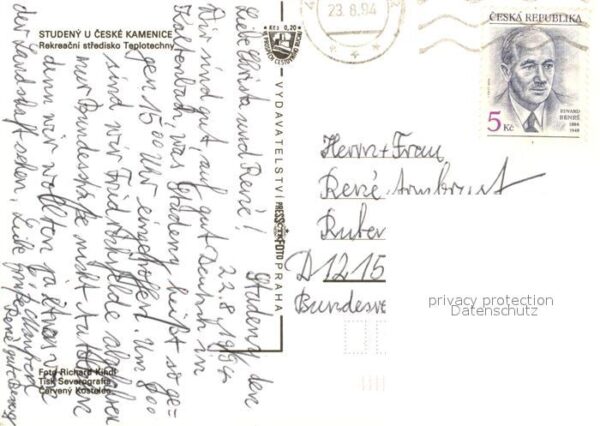 STUDENÝ U ČESKÉ KAMENICE
Rekreační středisko Teplotechny
Studený, den
22.8.1994
Liebe Christa und René!
Wir sind gut auf gut Deutsch in
Kaltenbach, was Studený heißt so ge-
gen 15 00 Uhr eingetroffen. Um 8 00
sind wir
nur Bundesstraße nicht Autobahn
denn wir wollten ja etwas von
der Landschaft sehen. Liebe Grüße
Foto Richard Kindl
Tisk Severografia
Červený Kostelec
Kčs 0,20
VYDAVATELSTVÍ PRESSFOTO PRAHA
23.8.94
ČESKÁ REPUBLIKA
EDVARD
BENEŠ
1884
1948
5 Kč
Herrn + Frau
René Armbrust
Ruber
D 1215
Bundesre
privacy protection
Datenschutz